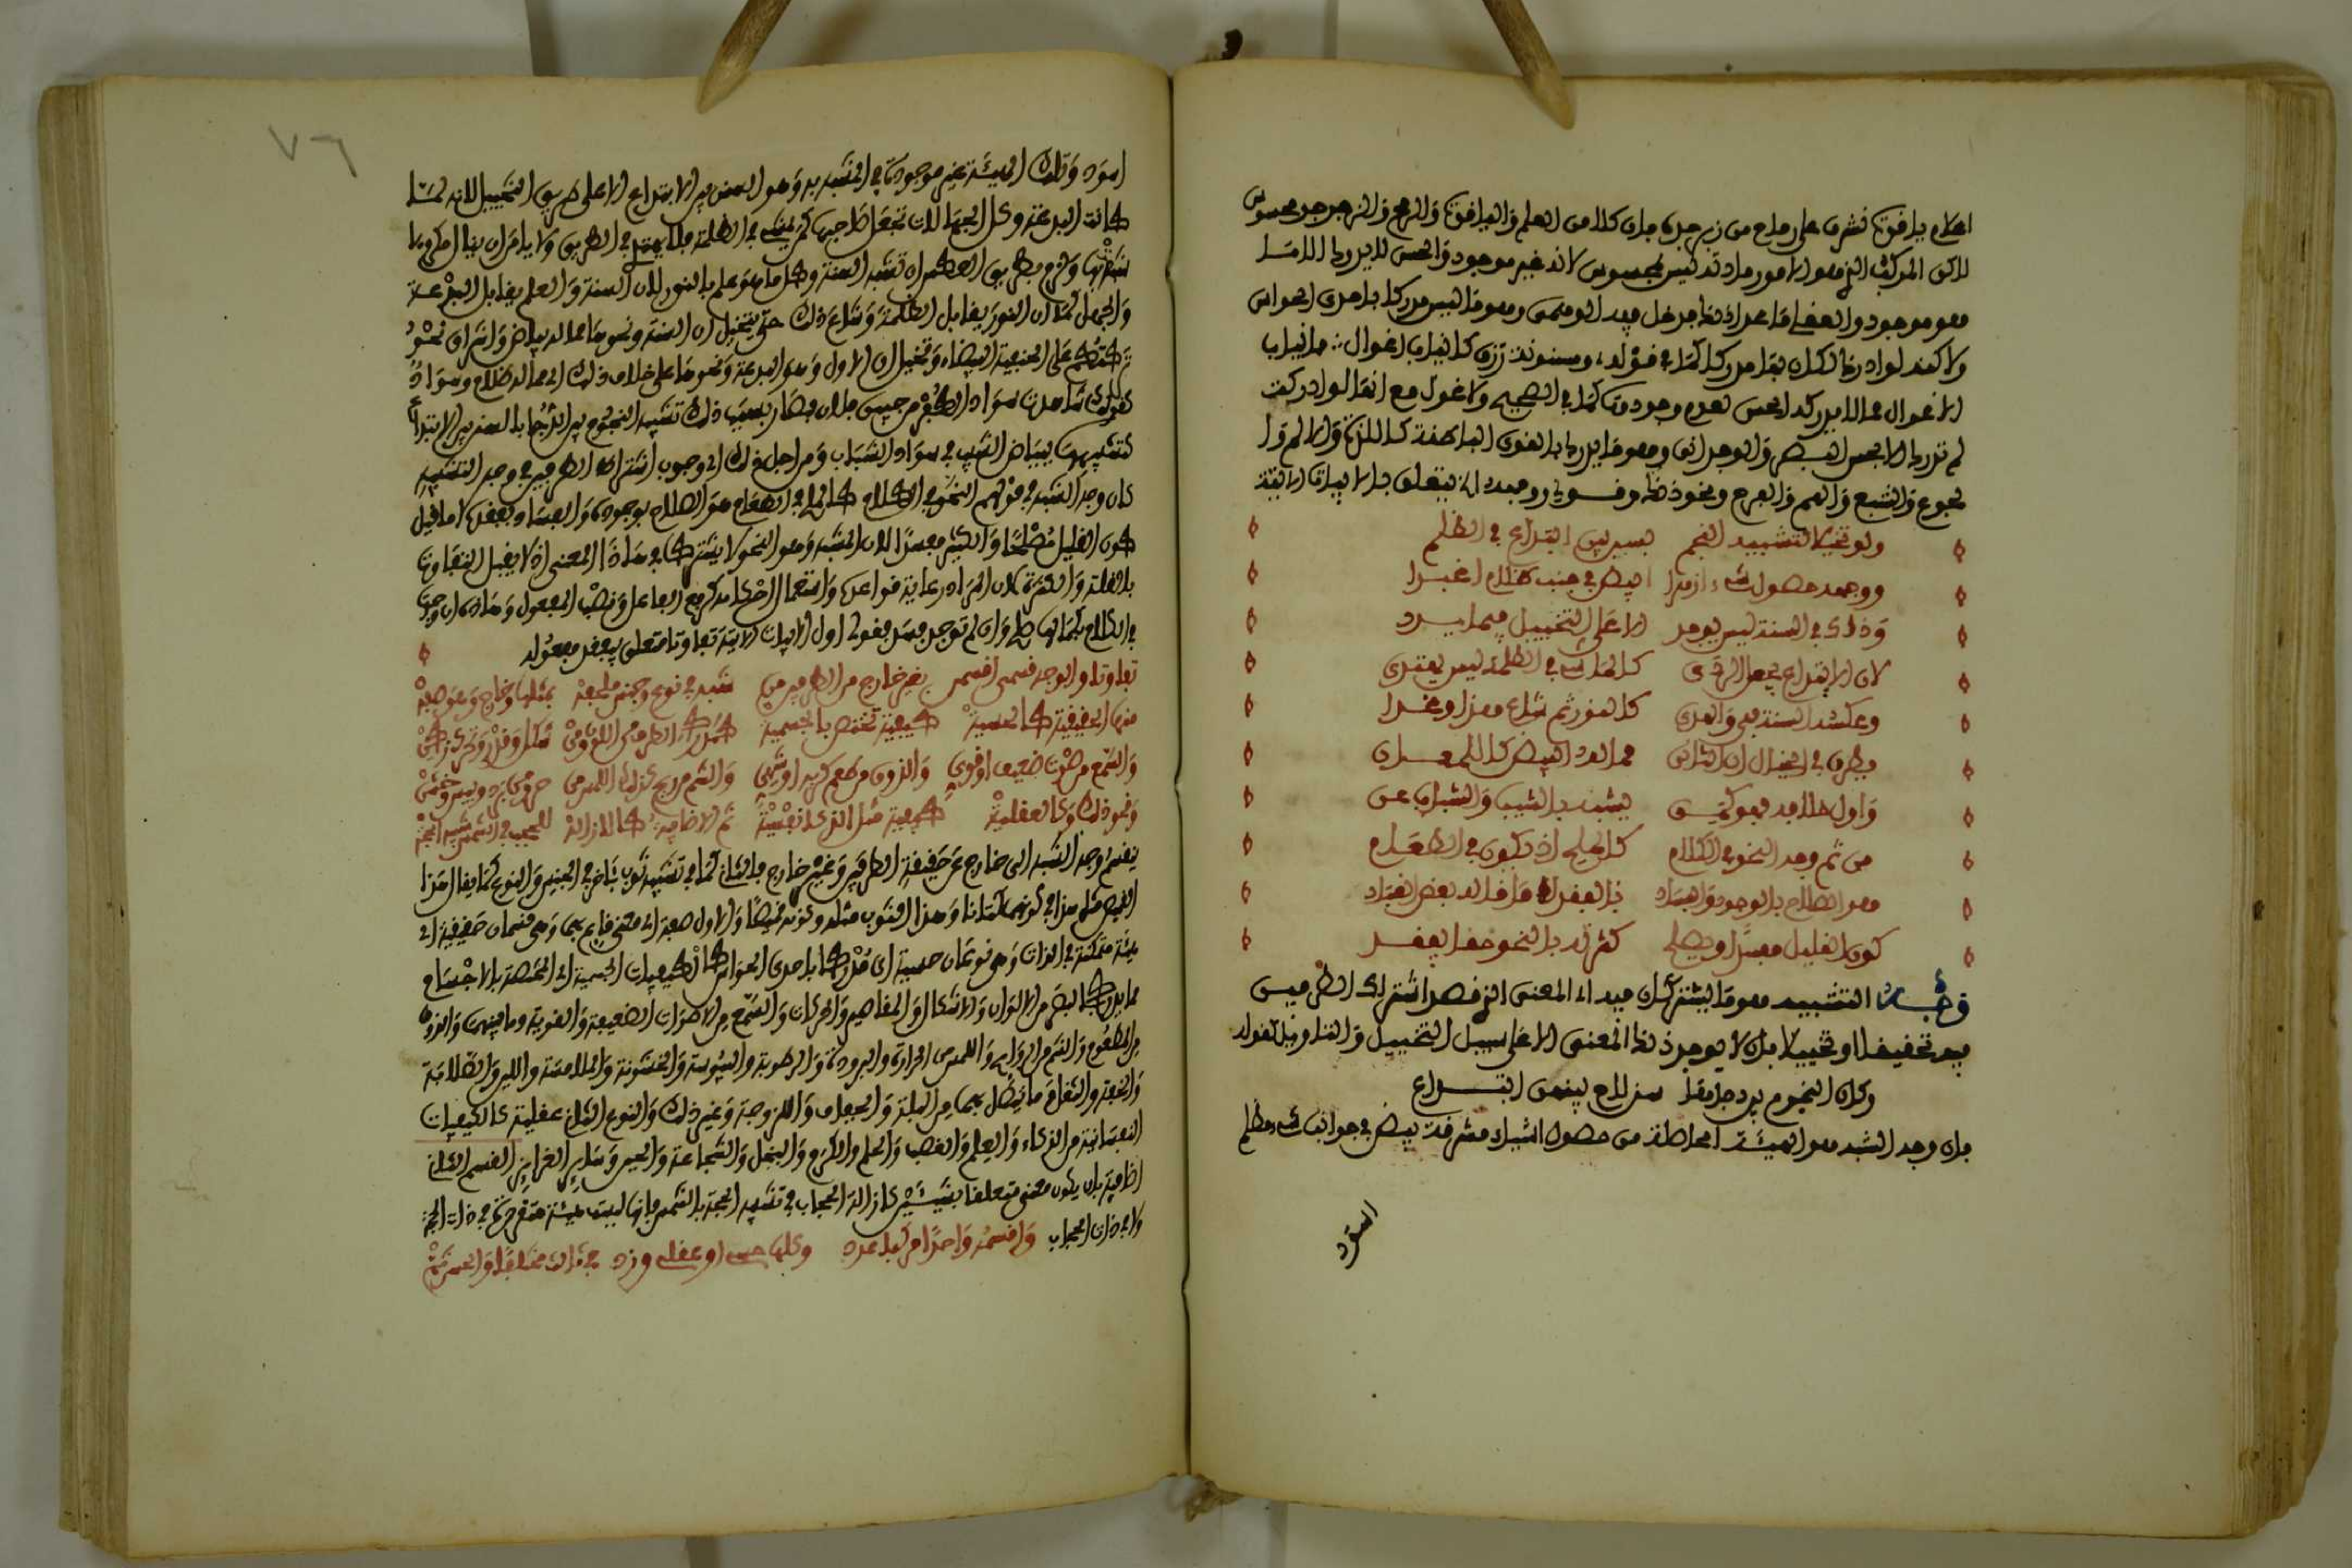 اعلام ياقوت نشرن على رماح من زبرجد فان كلا من العلم والياقوت والرمح والزبرجد محسوس
لاكن المركب الذي هو الامور مادته ليس بمحسوس لانه غير موجود والحس لا يدرك الا ما
هو موجود والعقلي ما عدا ذلك فدخل فيه الوهمي وهو ما ليس مدركا باحدى الحواس
ولاكنه لو ادرك لكان بها مدركا كما في قوله ومسنونة زرق كانياب اغوال فانياب
الاغوال مما لا يدركه الحس لعدم وجودها كما في الصحيح ولا غول مع انها لو ادركت
لم تدرك الا بحس البصر والوجداني وهو ما يدرك بالقوى الباطنة كاللذة والالم وا
لجوع والشبع والهم والفرح ونحو ذلك وقولي ووجهه الخ يتعلق بالابيات الاتية
ولو تخيلا لتشبيه النجم بسنن بين ابتداع في الظلم
ووجهه حصول شيء ازهرا ابيض في جنب ظلام اغبرا
وذاك في السنة ليس يوجد الا على التخييل فيما يسرد
لان الابتداع يجعل الردى كالماشي في الظلمة ليس يهتدى
وعكسه السنة فهي والهدى كالنور ثم شاع هذا وغدا
يطرق في الخيال ان الثاني مما له ابيض كاللمعان
واول خلافه فهو كمن يشبه بالشيب والشباب عن
من ثم وجه النحو في الكلام كالملح اذ يكون في الطعام
هو الصلاح بالوجود والفساد بالفقد لا ما قاله بعض العباد
كون القليل مفسدا او يصلح كثرته بالنحو
وجه التشبيه هو ما يشتركان فيه اي المعنى الذي قصد اشتراك الطرفين
فيه تحقيقا او تخييلا بان لا يوجد ذلك المعنى الا على سبيل التخييل والتاويل كقوله
وكان النجوم بين دجاها سنن لاح بينهن ابتداع
فان وجه الشبه هو الهيئة الحاصلة من حصول اشياء مشرقة بيض في جوانب شيء مظلم
اسود
٧٦
اسود وتلك الهيئة غير موجودة في المشبه به وهو السنن بين الابتداع الا على طريق التخييل لانه لما
كانت البدعة وكل الجهالات تجعل صاحبها كمن يمشي في الظلمة فلا يهتدي في الطريق ولا يامن ان ينال مكروها
شبهت بها ولزم بطريق العكس ان تشبه السنة وكل ما هو علم بالنور لان السنة والعلم يقابل البدعة
والجهل كما ان النور يقابل الظلمة وشاع ذلك حتى يتخيل ان السنة ونحوها مما له بياض واشراق نحو
تركتكم على الحنيفية البيضاء وتخيل ان الاول وهو البدعة ونحوها على خلاف ذلك اي مما له ظلام وسواد
كقولك شاهدت سواد الكفر من جبين فلان فصار بسبب ذلك تشبيه النجوم بين الدجا بالسنن بين الابتداع
كتشبيهها ببياض الشيب في سواد الشباب ومن اجل ذلك اي وجوب اشتراك الطرفين في وجه التشبيه
كان وجه الشبه في قولهم النحو في الكلام كالملح في الطعام هو الصلاح بوجوده والفساد بفقده لا ما قيل
كون القليل مصلحا والكثير مفسدا لان المشبه وهو النحو لا يشترك في هذا المعنى اذ لا يقبل التفاوت
بالقلة والكثرة لان المراد رعاية قواعده واستعمال احكامه كرفع الفاعل ونصب المفعول وهذه ان وجدت
في الكلام بكمالها صلح وان لم توجد فسد فقولي اول الابيات الاتية تفاوتا متعلق بيقبل
تفاوتا والوجه قسمين اقسم بغير خارج من الطرفين شبه في نوع وجنس
منها الحقيقية كالحسية كيفية تختص بالجسمية
والسمع من صوت ضعيف او قوي والذوق من طعم كريه او شهي والشم من ريح
ونحو ذلك وكالعقلية كيفية مثل الذكا نفسية ثم الاضافية كالازالة للحجب في الشمس شبه
ينقسم وجه الشبه الى خارج عن حقيقة الطرفين وغير خارج فالثاني كما في تشبيه ثوب باخر في الجنس والنوع كما يقال هذا
القميص مثل هذا في كونهما كتانا وهذا الثوب مثله وكونه قميصا والاول صفة اي معنى قائم بهما وهي قسمان حقيقية اي
هيئة متمكنة في الذات وهي نوعان حسية اي مدركة باحدى الحواس كالكيفيات الجسمية اي المختصة بالاجسام
مما يدرك بالبصر من الالوان والاشكال والمقادير والحركات والسمع من الاصوات الضعيفة والقوية وما بينهن والذوق
من الطعوم والشم من الروايح واللمس الحرارة والبرودة والرطوبة واليبوسة والخشونة والملاسة واللين والصلابة
والخفة والثقل وما يتصل بها من البلة والجفاف واللزوجة وغير ذلك والنوع الثاني عقلية كالكيفيات
النفسانية من الذكاء والعلم والغضب والحلم والكرم والبخل والشجاعة وساير الغرايز القسم الثاني
اضافية بان يكون معنى متعلقا بشيئين كازالة الحجاب في تشبيه الحجة بالشمس فانها ليست هيئة متقررة في ذات الحجة
ولا في ذات الحجاب واقسمه واحدا وكلها حسي او عقلي وزد